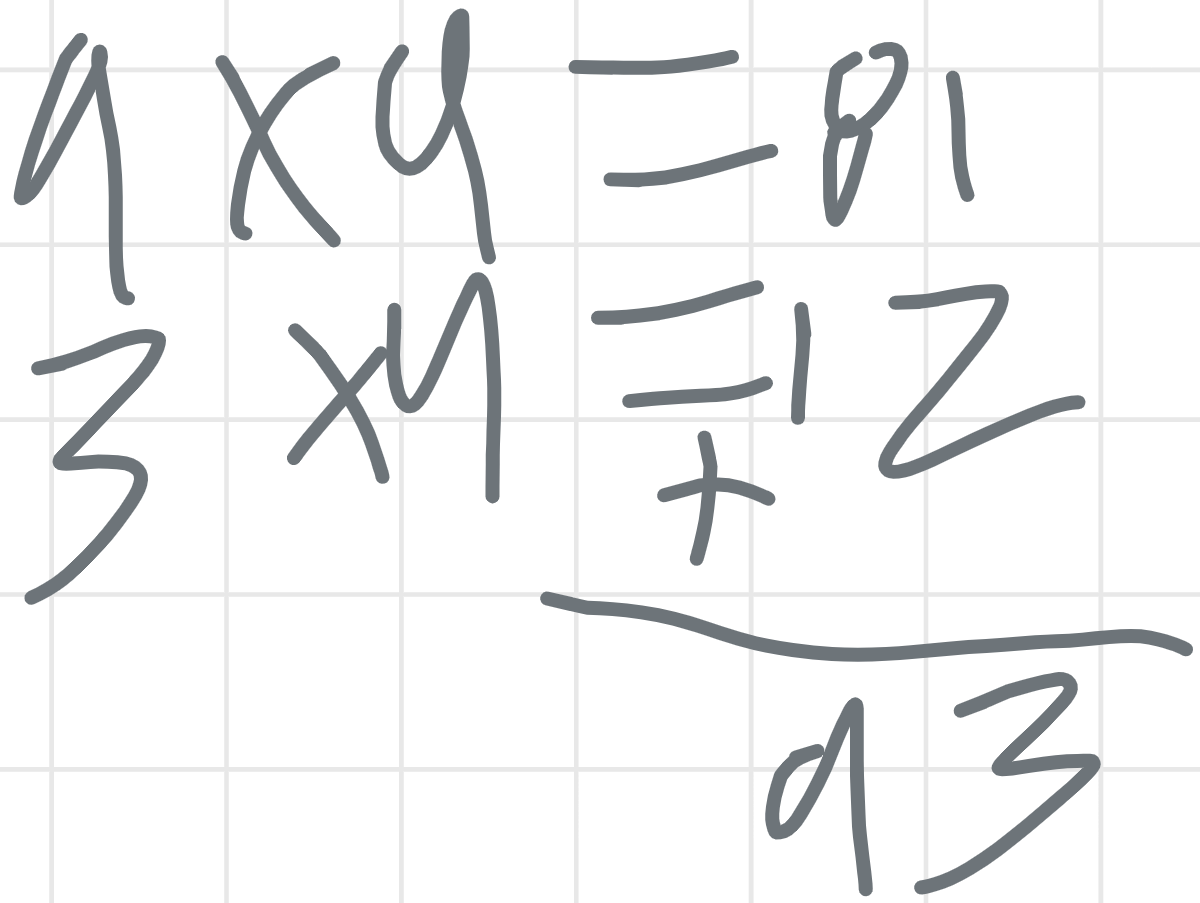 9 x 9 = 81
3 x 4 = 12
+
93